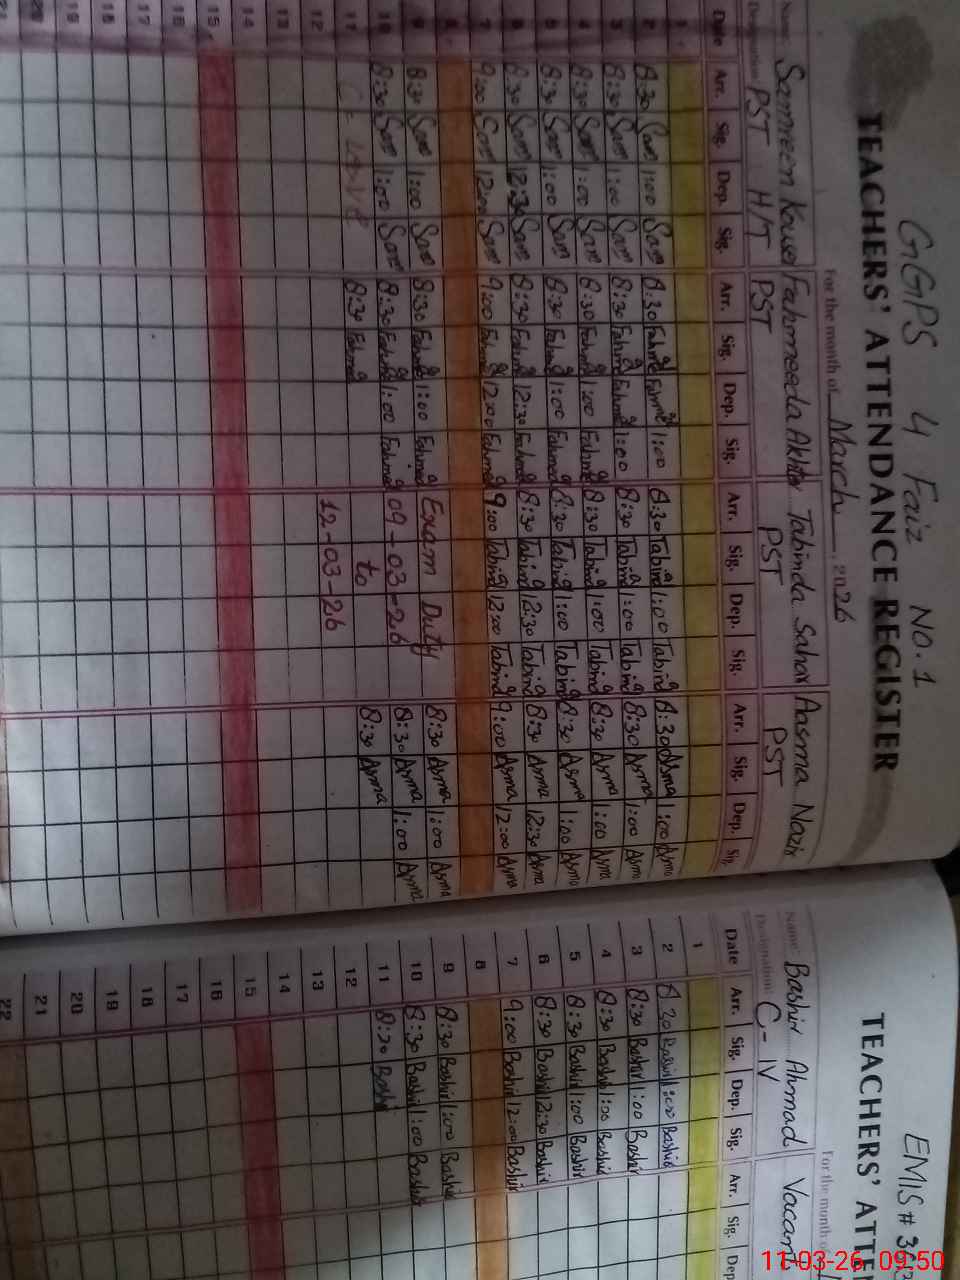 GGPS 4 Faiz NO.1
TEACHERS' ATTENDANCE REGISTER
For the month of March : 2026
Name Samreen Kouser Fahmeeda Akhter Tabinda Sahar Aasma Nazir
Designation PST H/T PST PST PST
Date Arr. Sig. Dep. Sig. Arr. Sig. Dep. Sig. Arr. Sig. Dep. Sig. Arr. Sig. Dep. Sig.
1
2 8:30 Sam 1:00 Sam 8:30 Fahmee Fahmee 1:00 8:30 Tabinda 1:00 Tabinda 8:30 Asma 1:00 Asma
3 8:30 Sam 1:00 Sam 8:30 Fahmee Fahmee 1:00 8:30 Tabinda 1:00 Tabinda 8:30 Asma 1:00 Asma
4 8:30 Sam 1:00 Sam 8:30 Fahmee 1:00 Fahmee 8:30 Tabinda 1:00 Tabinda 8:30 Asma 1:00 Asma
5 8:30 Sam 1:00 Sam 8:30 Fahmee 1:00 Fahmee 8:30 Tabinda 1:00 Tabinda 8:30 Asma 1:00 Asma
6 8:30 Sam 12:30 Sam 8:30 Fahmee 12:30 Fahmee 8:30 Tabinda 12:30 Tabinda 8:30 Asma 12:30 Asma
7 9:00 Sam 12:00 Sam 9:00 Fahmee 12:00 Fahmee 9:00 Tabinda 12:00 Tabinda 9:00 Asma 12:00 Asma
8
9 8:30 Sam 1:00 Sam 8:30 Fahmee 1:00 Fahmee Exam Duty 8:30 Asma 1:00 Asma
10 8:30 Sam 1:00 Sam 8:30 Fahmee 1:00 Fahmee 09-03-26 8:30 Asma 1:00 Asma
11 C = Leave 8:30 Fahmee to 8:30 Asma
12 12-03-26
13
14
15
16
17
18
19
20
21
EMIS #
TEACHERS' ATTEN
For the month of
Name Bashir Ahmad Vacant
Designation C-IV
Date Arr. Sig. Dep. Sig. Arr. Sig. Dep
1
2 8:30 Bashir 1:00 Bashir
3 8:30 Bashir 1:00 Bashir
4 8:30 Bashir 1:00 Bashir
5 8:30 Bashir 1:00 Bashir
6 8:30 Bashir 12:30 Bashir
7 9:00 Bashir 12:00 Bashir
8
9 8:30 Bashir 1:00 Bashir
10 8:30 Bashir 1:00 Bashir
11 8:30 Bashir
12
13
14
15
16
17
18
19
20
21
22
11-03-26 09:50